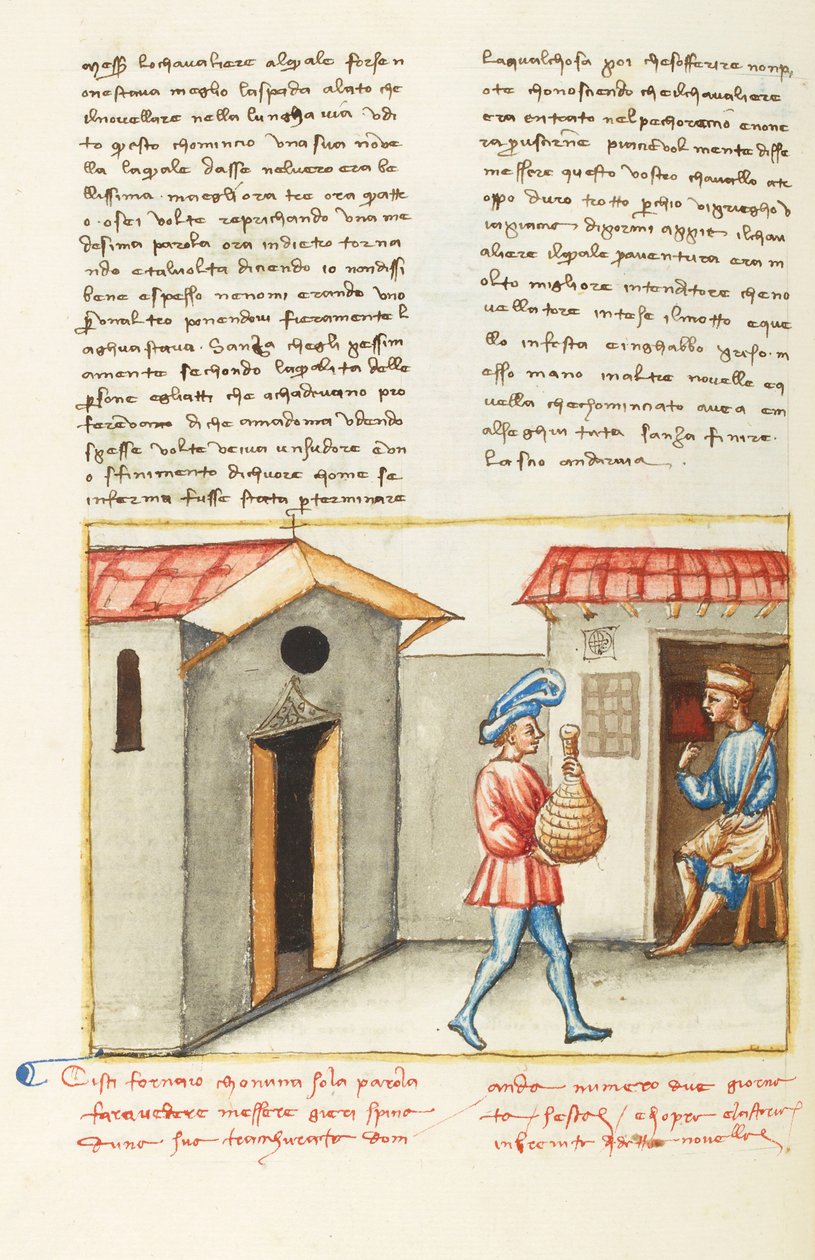 messer lo chavaliere alquale forse n
onestava meglio laspada alato che
ilnovellare nella lungha via udi
to questo chomincio una sua nove
lla laquale dasse nelvero era be
llissima · maegli ora tre ora quatt
o · o sei volte reprichando una me
desima parola ora indietro torna
ndo e talvolta dicendo io nondissi
bene e spesso nenomi errando uno
per unaltro ponendovi fieramente l
aghuastava · Sanza chegli pessim
amente sechondo laqualita delle
persone egliatti che achadevano pro
fereva di che amadonna udendo
spesse volte veniva unsudore e un
o sfinimento dichuore chome se
inferma fusse stata per terminare
Laqualchosa poi chesofferire nonp
ote chonosciendo cheilchavaliere
era entrato nelpechoreccio enone
ra per uscirne piacievolmente disse
messere questo vostro chavallo a tr
oppo duro trotto perchio vipriegho v
ipiaccia diponermi appie ilchav
aliere ilquale peraventura era m
olto migliore intenditore cheno
vellatore intese ilmotto eque
llo infesta e inghabbo preso · m
esso mano inaltre novelle eq
uella chechominciato avea em
alseghuitata sanza finire ·
Lascio andar via ·
Cisti fornaio chonuna sola parola
fa ravedere messere gieri spina
duna sua trachurata dom
anda numero due giorna
ta / sesta / chopre
inbrevita detta novella